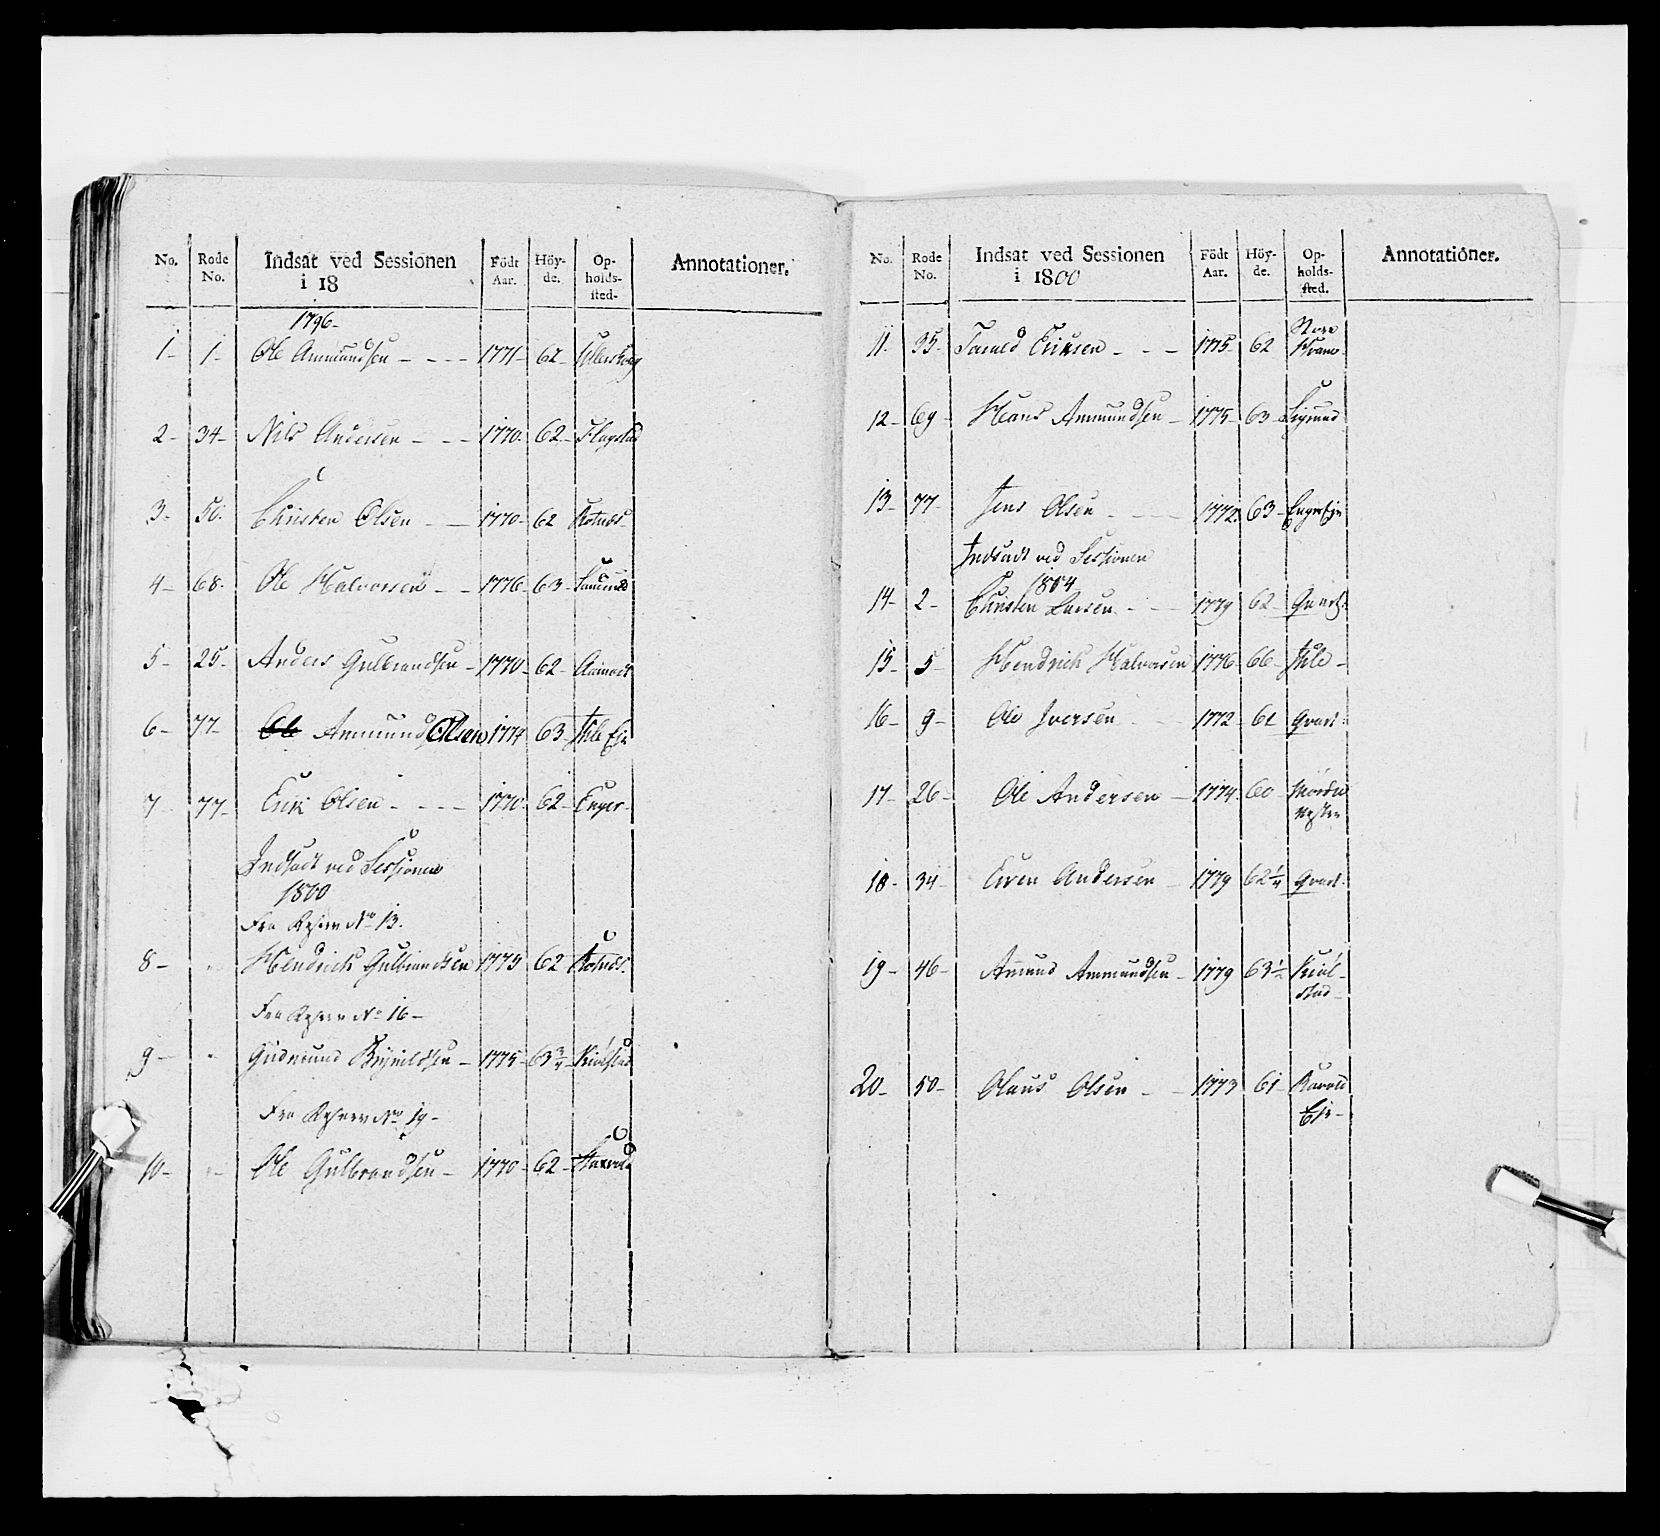 No. Rode No. Indsat ved Sessionen i 18 Födt Aar. Höy-de. Op-holds-sted. Annotationer.
1796-
1- 1- Ole Ammundsen - - - 1771- 62-
2- 34- Nils Andersen - - - 1770- 62- Flagstad
3- 50- Christen Olsen - - 1770- 62 Kotnæs
4- 68- Ole Halvorsen - - 1776- 63-
5- 25- Anders Gulbrandsen - 1770- 62- Aamodt
6- 77- Ammund Olsen 1774 63- Ihle Eje
7- 77- Erik Olsen - - - 1770- 62- Enger-
Indsadt ved Sessionen
1800
Fra Reserv No 13.
8- Hendrich Gulbrandsen 1775 62 Kotnæs
Fra Reserv No 16-
9- Gudmund Brynildsen - 1775- 63 3/4 Kiølstad
Fra Reserv No 19-
10- Ole Gulbrandsen - 1770- 62-
No. Rode No. Indsat ved Sessionen i 1800 Födt Aar. Höy-de. Op-holds-sted. Annotationer.
Store
11. 35- Eriksen - - - 1775- 62
12- 69- Hans Ammundsen - 1775- 63-
13- 77- Jens Olsen - - - 1772 63- Enger Eje
Indsadt ved Sessionen
1804
14- 2- Christen Larsen - - 1779 62-
15- 5- Hendrich Halvorsen 1776 66- Ihle -
16- 9- Ole Iversen - - 1772- 61
17- 26- Ole Andersen - 1774- 60
18- 34- Even Andersen - 1779 62 1/4
19- 46- Amund Ammundsen - 1779 63 1/2 Kiøl-
stad-
20- 50- Olaus Olsen - - 1773 61-
Eje-